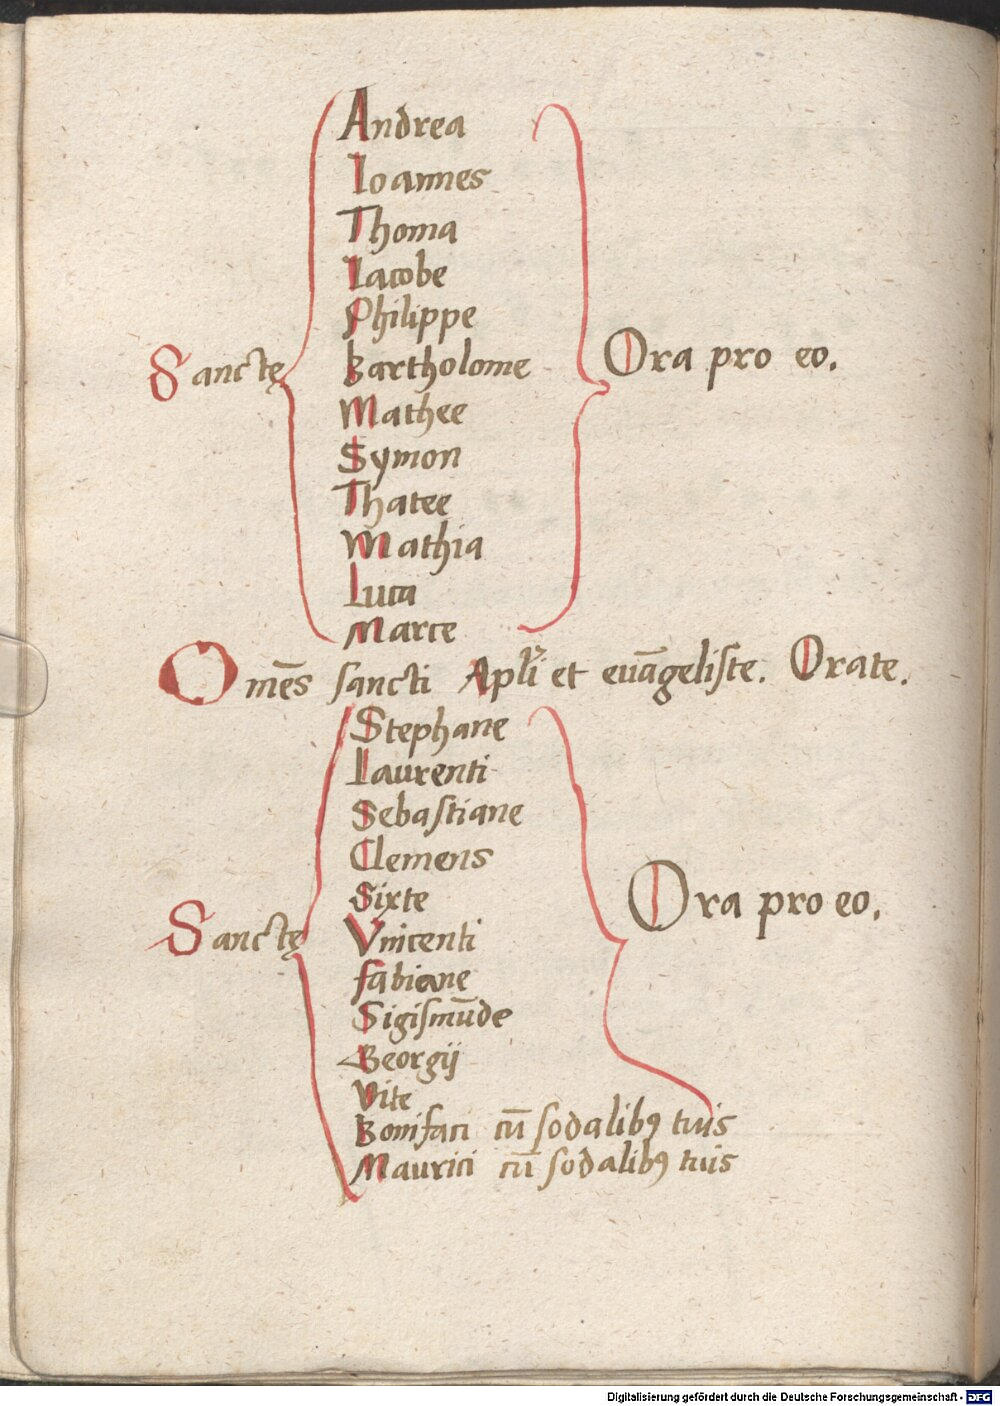 Andrea
Ioannes
Thoma
Iacobe
Philippe
Sanctę
Bartholome
Ora pro eo.
Mathee
Symon
Thatee
Mathia
Luca
Marce
Omēs sancti Apl̄i et euāgeliste. Orate.
Stephane
Laurenti
Sebastiane
Clemens
Sixte
Ora pro eo.
Sanctę
Vincenti
fabiane
Sigismūde
Georgij
Vite
Bonifaci cū sodalibꝰ tuis
Maurici cū sodalibꝰ tuis
Digitalisierung gefördert durch die Deutsche Forschungsgemeinschaft - DFG